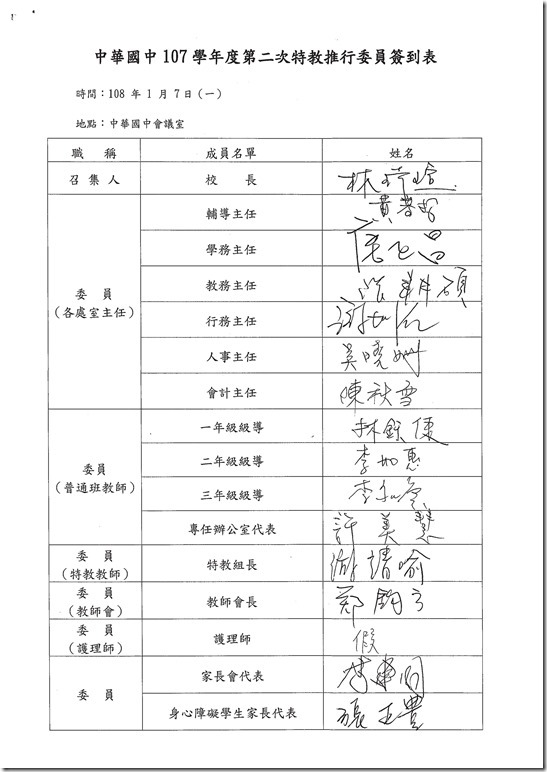 中華國中 107 學年度第二次特教推行委員簽到表
時間：108 年 1 月 7 日（一）
地點：中華國中會議室
職 稱 成員名單 姓名
召 集 人 校 長 林
輔導主任 黃
學務主任
教務主任 碩
行務主任
人事主任 吳曉姍
會計主任 陳秋雪
委 員
（各處室主任）
一年級級導 林
二年級級導 李如惠
三年級級導 李
專任辦公室代表 許美慧
委員
（普通班教師）
委 員
（特教教師）
特教組長 靖喻
委 員
（教師會）
教師會長 鄭鈞
委 員
（護理師）
護理師 假
委 員
家長會代表
身心障礙學生家長代表 張正豐